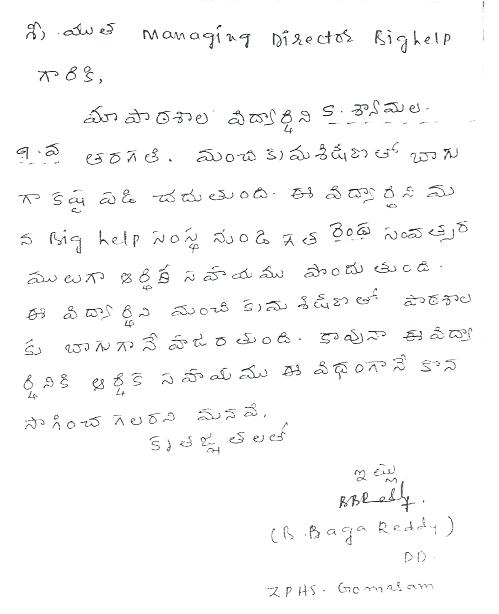 శ్రీ. యుత Managing Director Bighelp
గారికి,
మా పాఠశాల విద్యార్థిని కె. శ్యామల.
9. వ తరగతి. మంచి క్రమశిక్షణతో బాగు
గా కష్ట పడి చదువుతుంది. ఈ విద్యార్థిని మ
న Big help సంస్థ నుండి గత రెండు సంవత్సర
ములుగా ఆర్థిక సహాయము పొందుతుంది.
ఈ విద్యార్థిని మంచి క్రమశిక్షణతో పాఠశాల
కు బాగుగానే హాజరతుంది. కావునా ఈ విద్యా
ర్థినికి ఆర్థిక సహాయము ఈ విధంగానే కొన
సాగించ గలరని మనవి.
కృతజ్ఞతలతో
ఇట్లు
BBReddy.
(B. Baga Reddy)
DD.
ZPHS. Gomasam